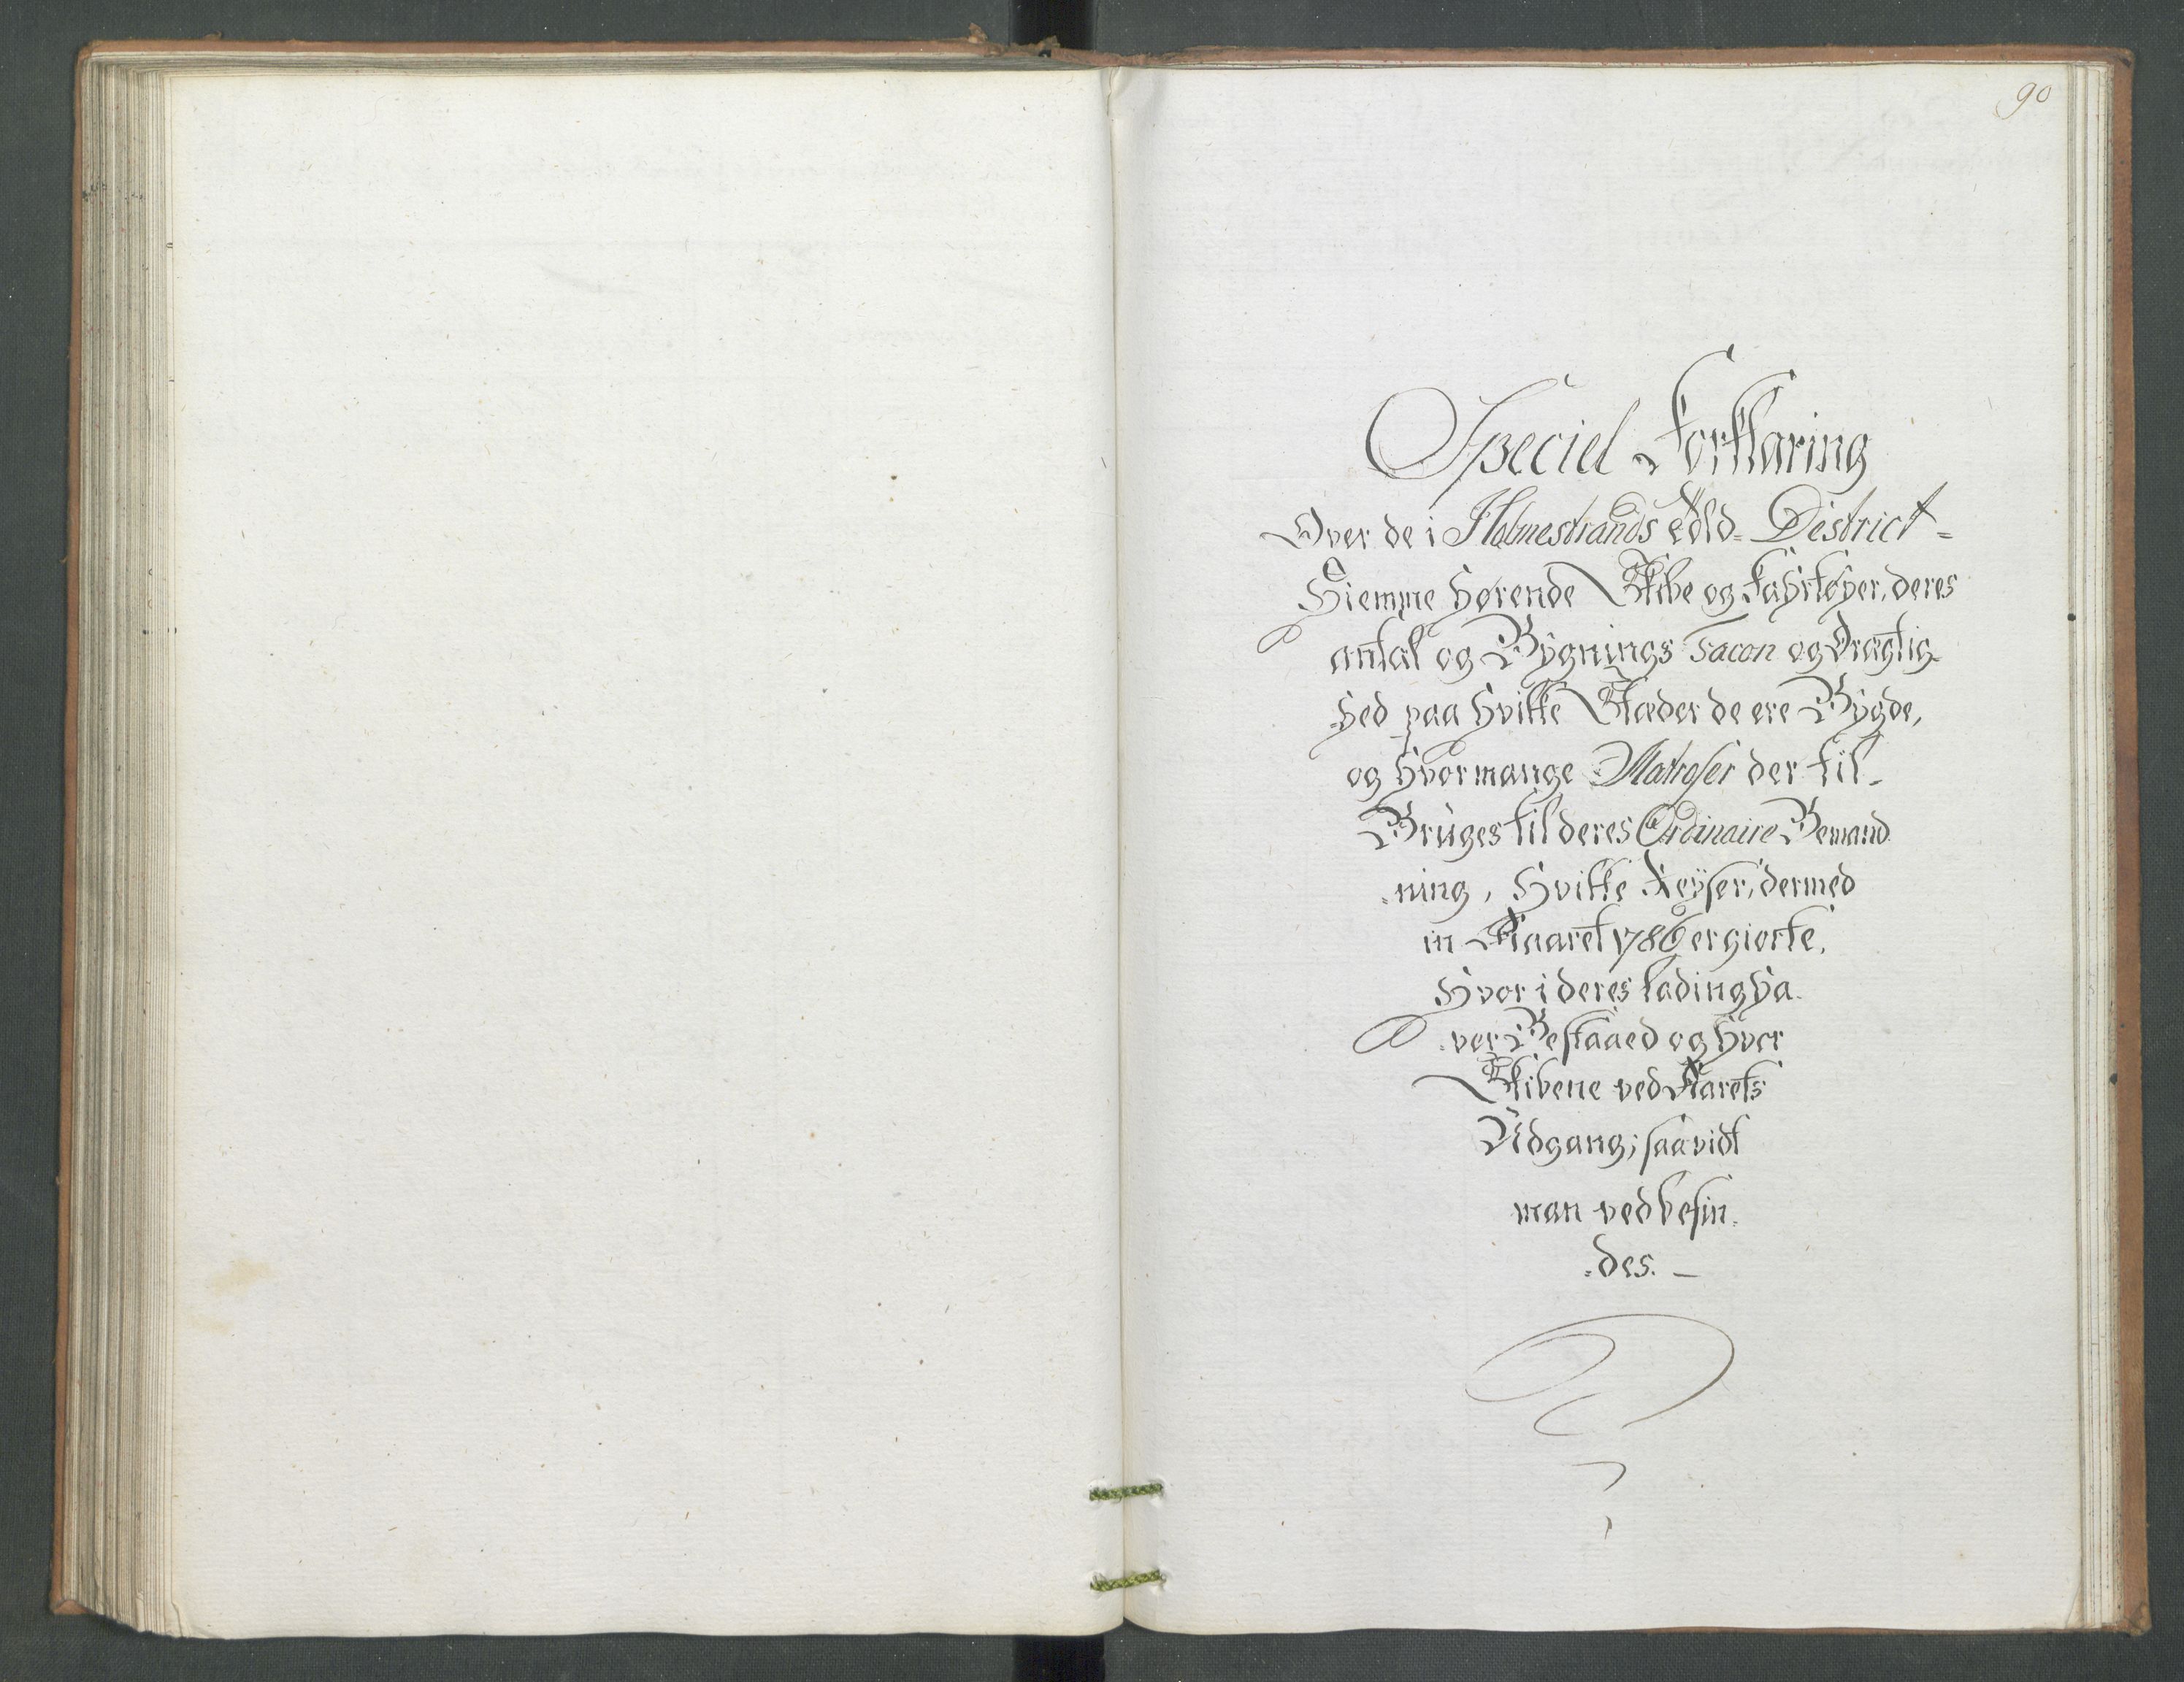 90
Speciel Forklaring
Over de i Holmestrands Told= District=
Hiemme hørende Skibe og Fahrtøyer, deres
antal og Bygnings Facon og Drægtig-
=hed paa hvilke Stæder de ere Bygde,
og hvor mange Matroser der til-
Bruges til deres Ordinaire Bemand
=ning, Hvilke Reyser, dermed
in Aaret 1786 er giorte,
Hvor i deres ladning ha-
=ver Bestaaed og hvor
Skibene ved Aarets
Udgang; saavidt
man ved befin=
=des. —